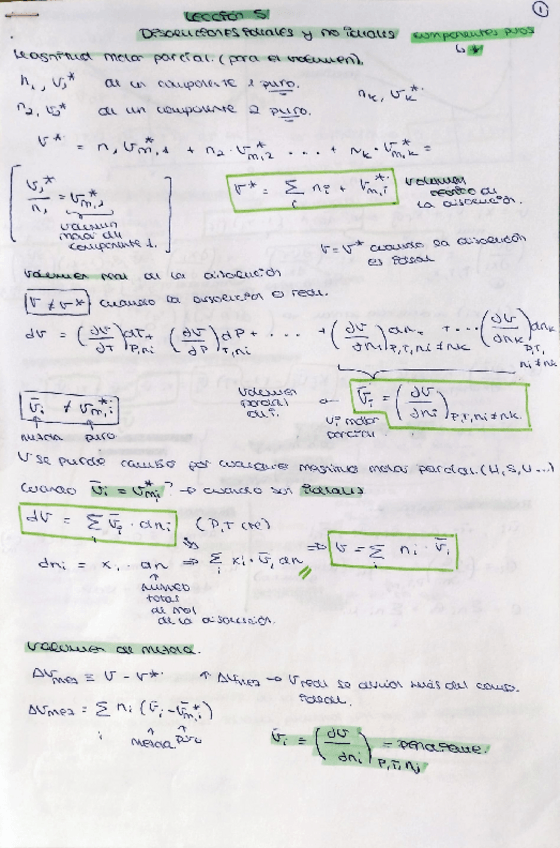 LECCIÓN 5 ①
DISOLUCIONES IDEALES y NO IDEALES componentes puros
↳ *
Magnitud molar parcial. (para el volumen).
n₁, V₁* de un componente 1 puro. nₖ, Vₖ*
n₂, V₂* de un componente 2 puro.
V* = n₁ V*m,1 + n₂ · V*m,2 ... + nₖ · V*m,k =
[ V₁*/n₁ = V*m,1 ]
volumen molar del componente 1.
V* = Σᵢ nᵢ + V*m,i volumen de la disolución.
V = V* cuando la disolución es ideal
Volumen real de la disolución
V ≠ V* cuando la disolución es real.
dV = (∂V/∂T)P,ni dT + (∂V/∂P)T,ni dP + ... + (∂V/∂n₁)P,T,ni≠nk dn₁ + ... (∂V/∂nk)P,T,ni≠nk dnk
V̄i ≠ V*m,i
mezcla puro
volumen parcial de i.
V̄i = (∂V/∂ni)P,T,ni≠nk
Vi molar parcial.
V se puede cambiar por cualquier magnitud molar parcial. (H, S, U...)
Cuando V̄i = V*m,i? → cuando son ideales
dV = Σᵢ V̄i · dni (P,T cte)
dni = xi dn ⇒ Σᵢ xi · V̄i dn ⇒ V = Σᵢ ni · V̄i
número total de mol de la disolución.
Volumen de mezcla.
ΔVmez ≡ V - V* ↑ ΔVmez → V real se desvía más del comp. ideal.
ΔVmez = Σᵢ ni (V̄i - V*m,i)
mezcla puro
V̄i = (∂V/∂ni)P,T,nj = pendiente.